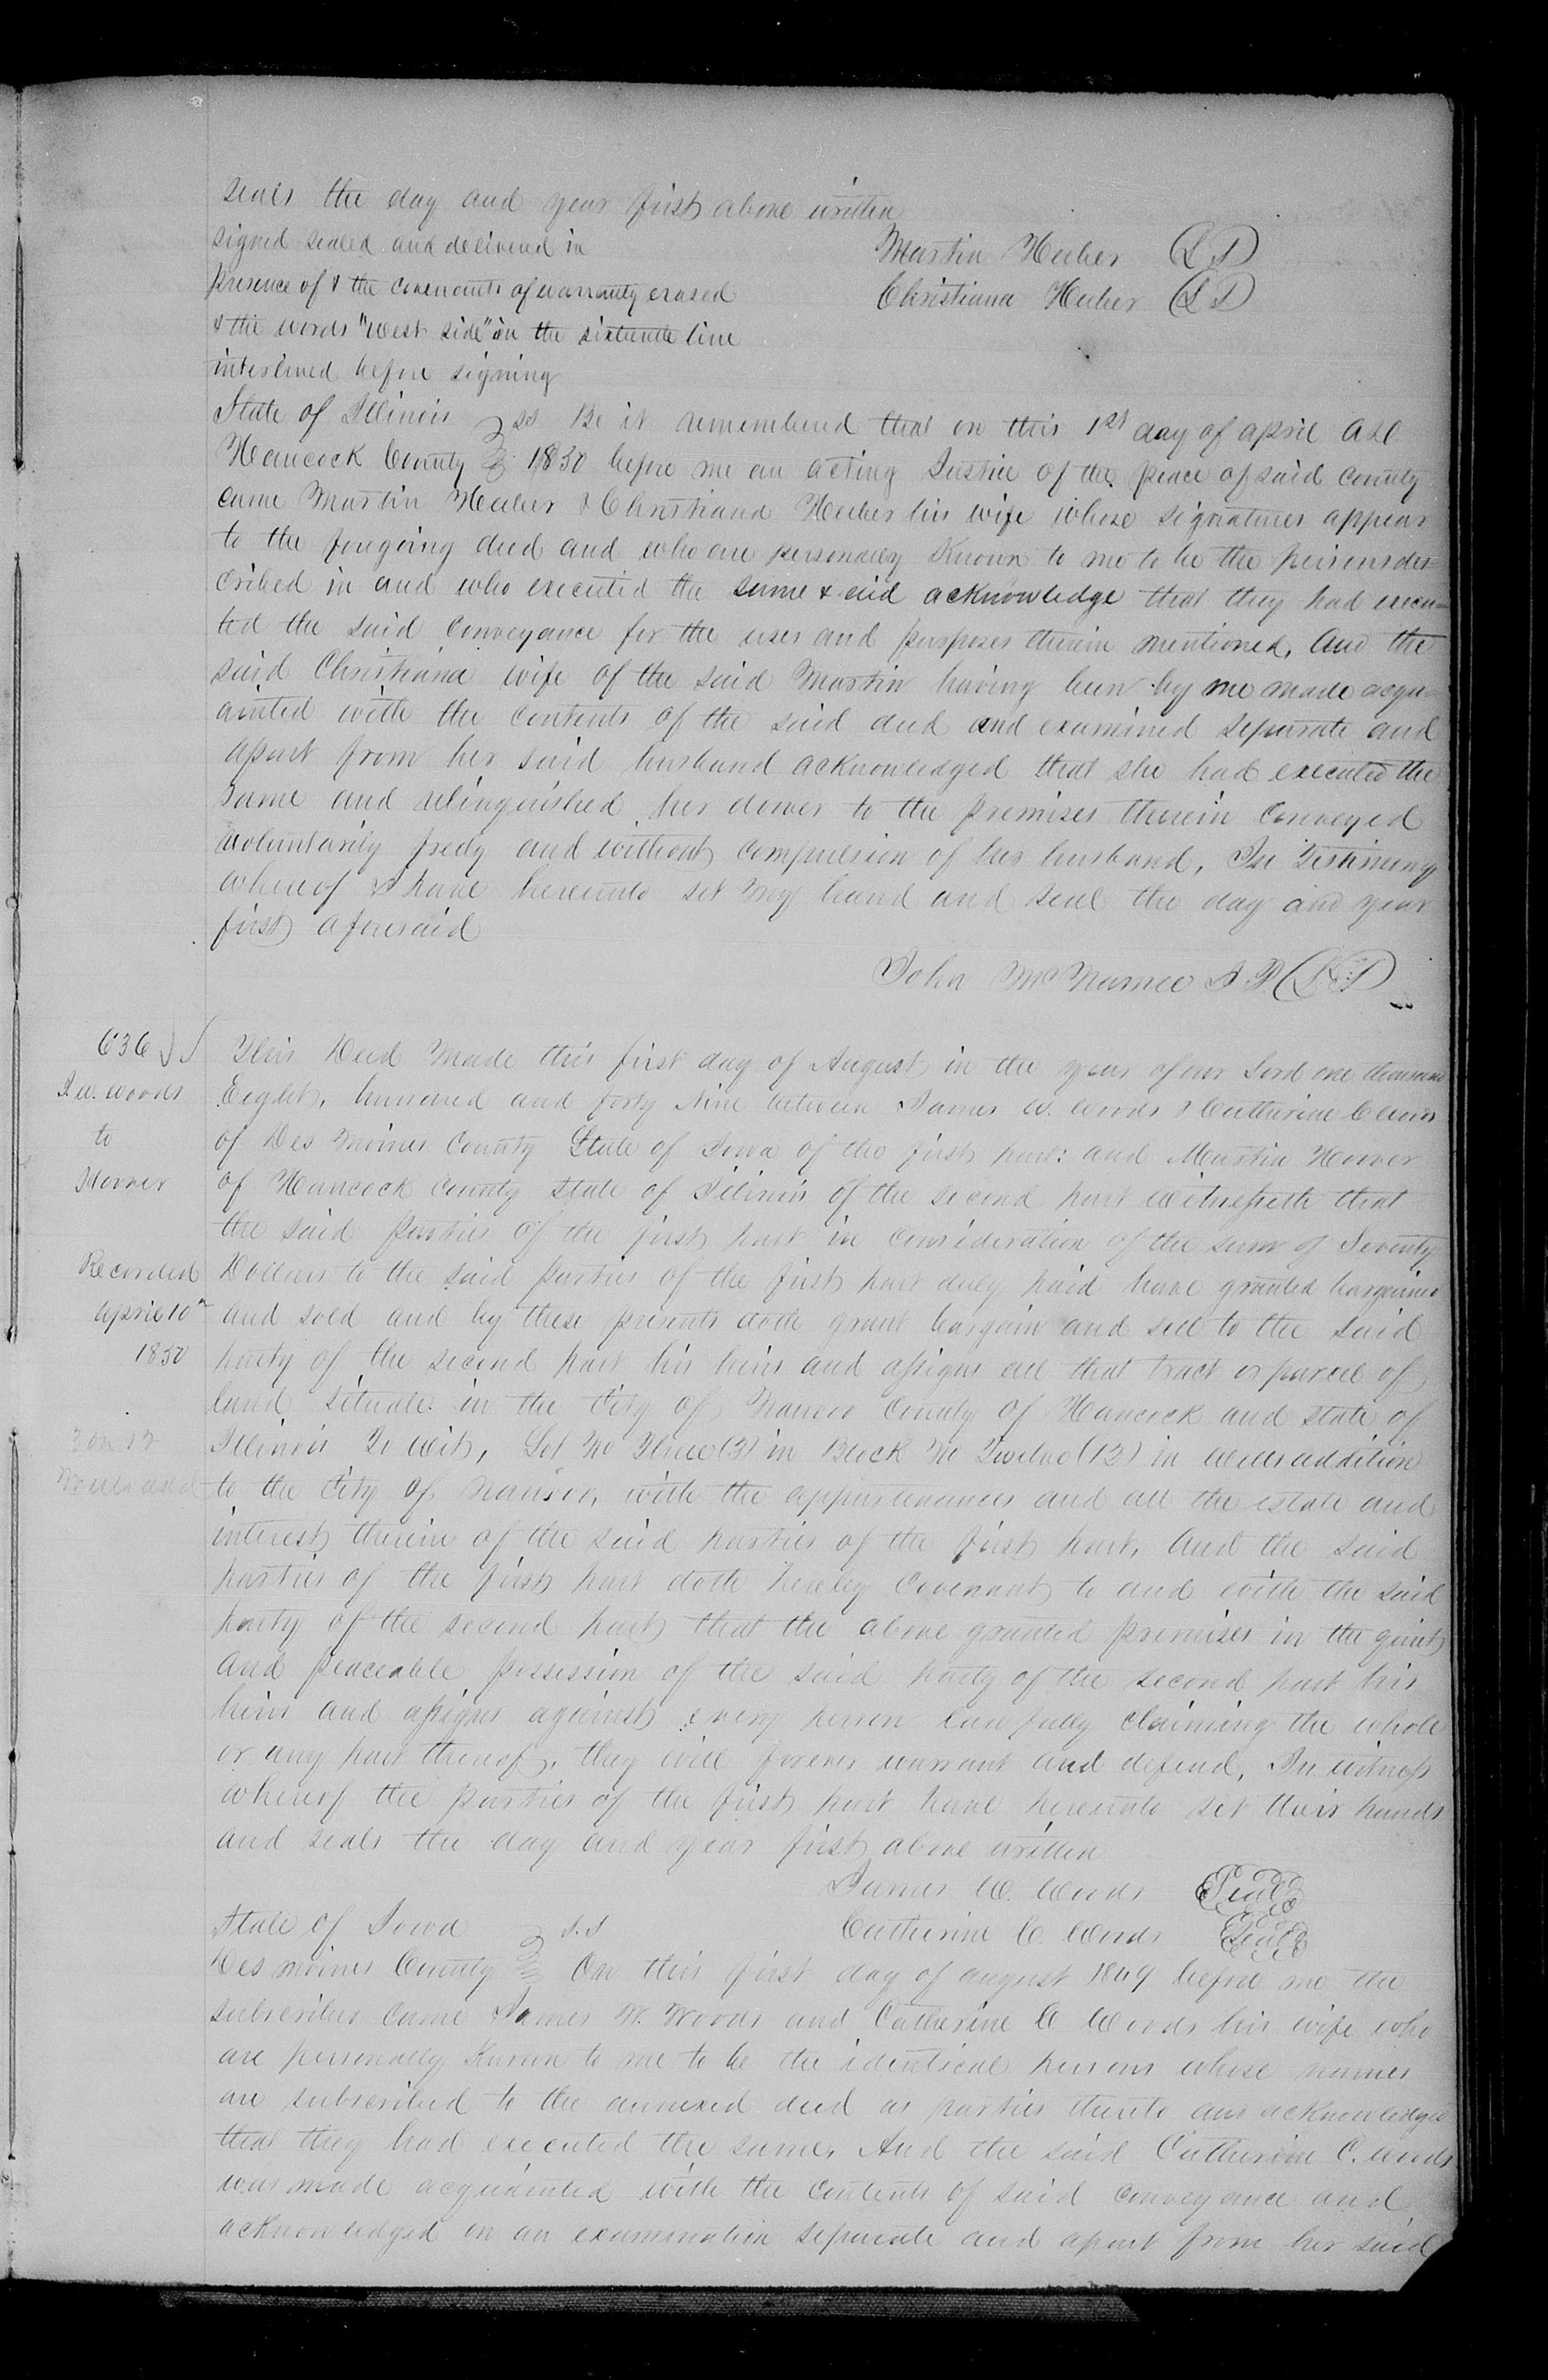 seals the day and year first above written
signed sealed and delivered in
Martin Heeber (L S)
presence of & the covenants of warranty erased
Christiana Heeber (L S)
& the words "West side" in the sixteenth line
interlined before signing
State of Illinois } ss Be it remembered that on this 1st day of April AD
Hancock County } 1850 before me an acting Justice of the peace of said county
came Martin Heeber & Christiana Heeber his wife whose signatures appear
to the foregoing deed and who are personaly Known to me to be the persons des=
cribed in and who executed the same & did acknowledge that they had execu=
ted the said Conveyance for the uses and purposes therein mentioned, And the
said Christiana wife of the said Martin having been by me made acqu=
ainted with the contents of the said deed and examined separate and
apart from her said husband acknowledged that she had executed the
same and relinquished her dower to the premises therein Conveyed
voluntarily freely and without compulsion of her husband, In Testimony
whereof I have hereunto set my hand and seal the day and year
first aforesaid
John McNamee J P (L S)
636
J. W. Woods
to
Hoover
Recorded
April 10th
1850
3 on 12
Wells add
This Deed Made this first day of August in the year of our Lord one thousand
Eight, hundred and forty Nine between James W. Woods & Catherine C Woods
of Des Moines County State of Iowa of the first part: and Martin Hoover
of Hancock County State of Illinois of the second part Witnesseth that
the said parties of the first part in consideration of the sum of Seventy
Dollars to the said parties of the first part duly paid have granted bargained
and sold and by these presents doth grant bargain and sell to the said
party of the second part his heirs and assigns all that tract or parcel of
land situate in the City of Nauvoo County of Hancock and State of
Illinois To Wit, Lot No Three (3) in Block No Twelve (12) in Wells addition
to the City of Nauvoo, with the appurtenances and all the estate and
interest therein of the said parties of the first part, And the said
parties of the first part doth hereby Covenant to and with the said
party of the second part that the above granted premises in the quiet
and peaceable possession of the said party of the second part his
heirs and assigns against every person lawfully claiming the whole
or any part thereof, they will forever warrant and defend, In witness
whereof the parties of the first part have hereunto set their hands
and seals the day and year first above written
James W. Woods Seal
State of Iowa } S.S
Catherine C. Woods Seal
Des Moines County } On this first day of August 1849 before me the
subscriber came James W. Woods and Catherine C Woods his wife who
are personally Known to me to be the identical persons whose names
are subscribed to the annexed deed as parties thereto and acknowledged
that they had executed the same, And the said Catherine C. Woods
was made acquainted with the contents of said conveyance and
acknowledged on an examination separate and apart from her said